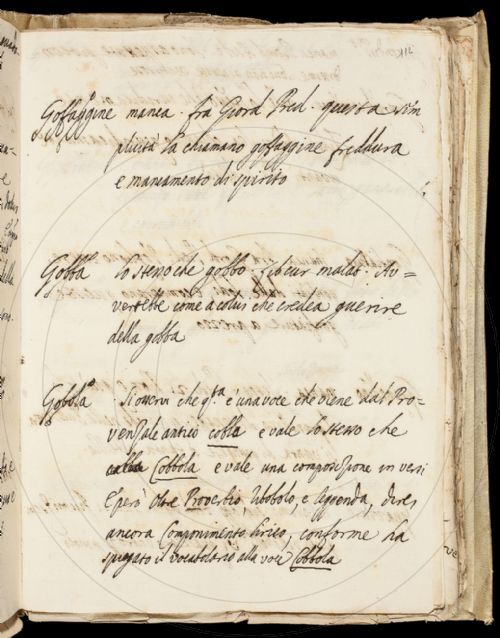 Goffaggine manca. fra Giord. Pred. questa sim
plicità la chiamano goffaggine freddura
e mancamento di spirito
Gobba lo stesso che gobbo. lib. cur. malat. Av=
vertette come a colui che credea guerire
della gobba
Gobola Si osservi che q.ta è una voce che viene dal Pro=
venzale antico cobla e vale lo stesso che
Cobbola e vale una composizione in versi
e però oltre Proverbio, Ubbola, e leggenda, direi
ancora Componimento lirico, conforme ha
spiegato il vocabolario alla voce Cobbola